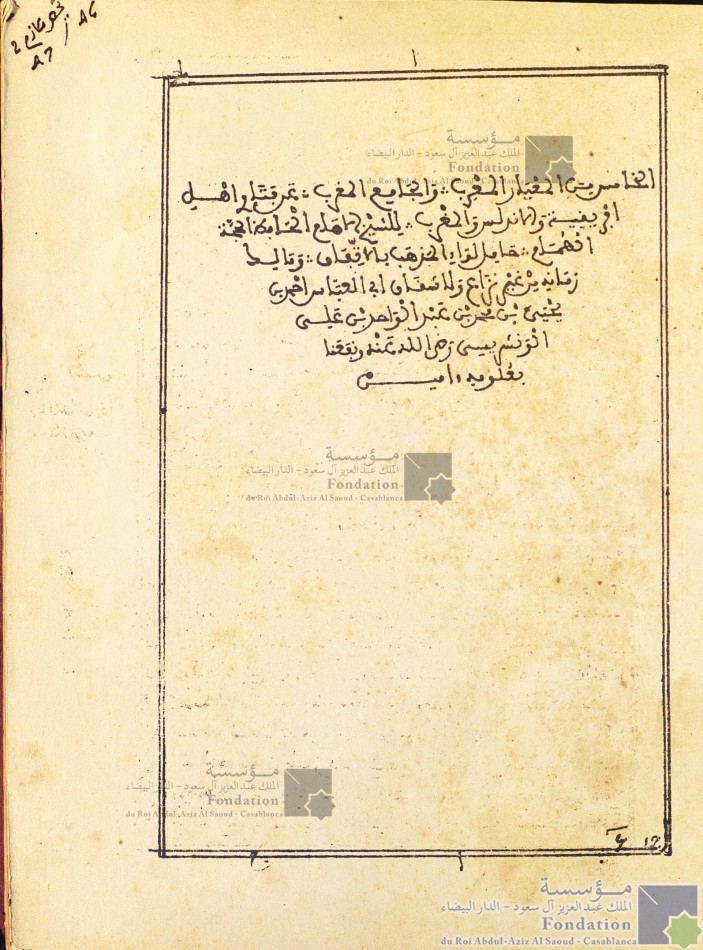 الخامس من المعيار المغرب ∴ والجامع المعرب ∴ عن فتاوي اهل
افريقية والاندلس والمغرب ∴ للشيخ الامام الحافظ الحجة
الهمام ∴ حامل لواء المذهب بالاتفاق ∴ ومالك
زمانه من غير نزاع ولا شقاق ابي العباس احمد بن
يحيى بن محمد بن عبد الواحد بن علي
الونشريسي رضي الله عنه ونفعنا
بعلومه ءاميـــن
مؤسسة
الملك عبد العزيز آل سعود - الدار البيضاء
Fondation
du Roi Abdul-Aziz Al Saoud - Casablanca
مؤسسة
الملك عبد العزيز آل سعود - الدار البيضاء
Fondation
du Roi Abdul-Aziz Al Saoud - Casablanca
مؤسسة
الملك عبد العزيز آل سعود - الدار البيضاء
Fondation
du Roi Abdul-Aziz Al Saoud - Casablanca
مؤسسة
الملك عبد العزيز آل سعود - الدار البيضاء
Fondation
du Roi Abdul-Aziz Al Saoud - Casablanca